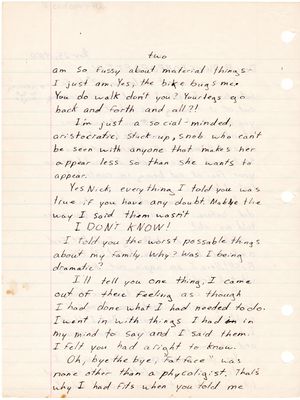 two
am so fussy about material things-
I just am. Yes, the bike bugs me.
You do walk don't you? Your legs go
back and forth and all?!
I'm just a social-minded,
aristocratic, stuck-up, snob who can't
be seen with anyone that makes her
appear less so than she wants to
appear.
Yes Nick, everything I told you was
true if you have any doubt. Mabbe the
way I said them wasn't
I DON'T KNOW!
I told you the worst possable things
about my family. Why? Was I being
dramatic?
I'll tell you one thing. I came
out of there feeling as though
I had done what I had needed to do.
I went in with things I had in
my mind to say and I said them.
I felt you had a right to know.
Oh, bye the bye, "fat face" was
none other than a phycoligist. Thats
why I had fits when you told me